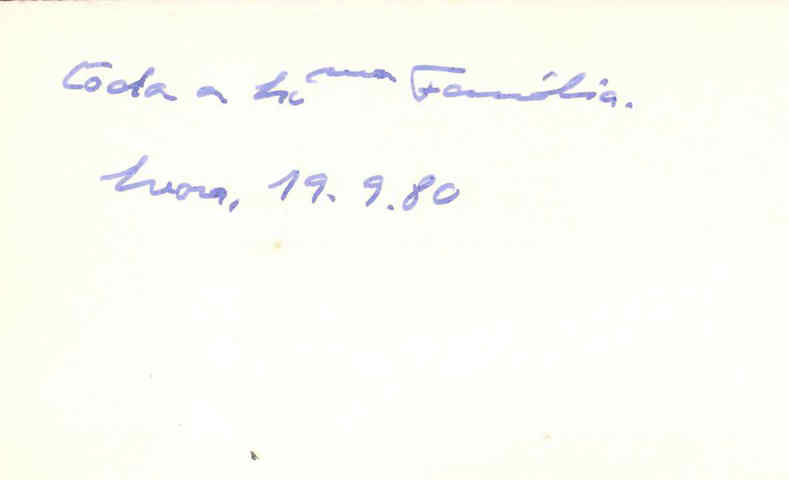 toda a Ex.ma Família.
Évora, 19. 9. 80